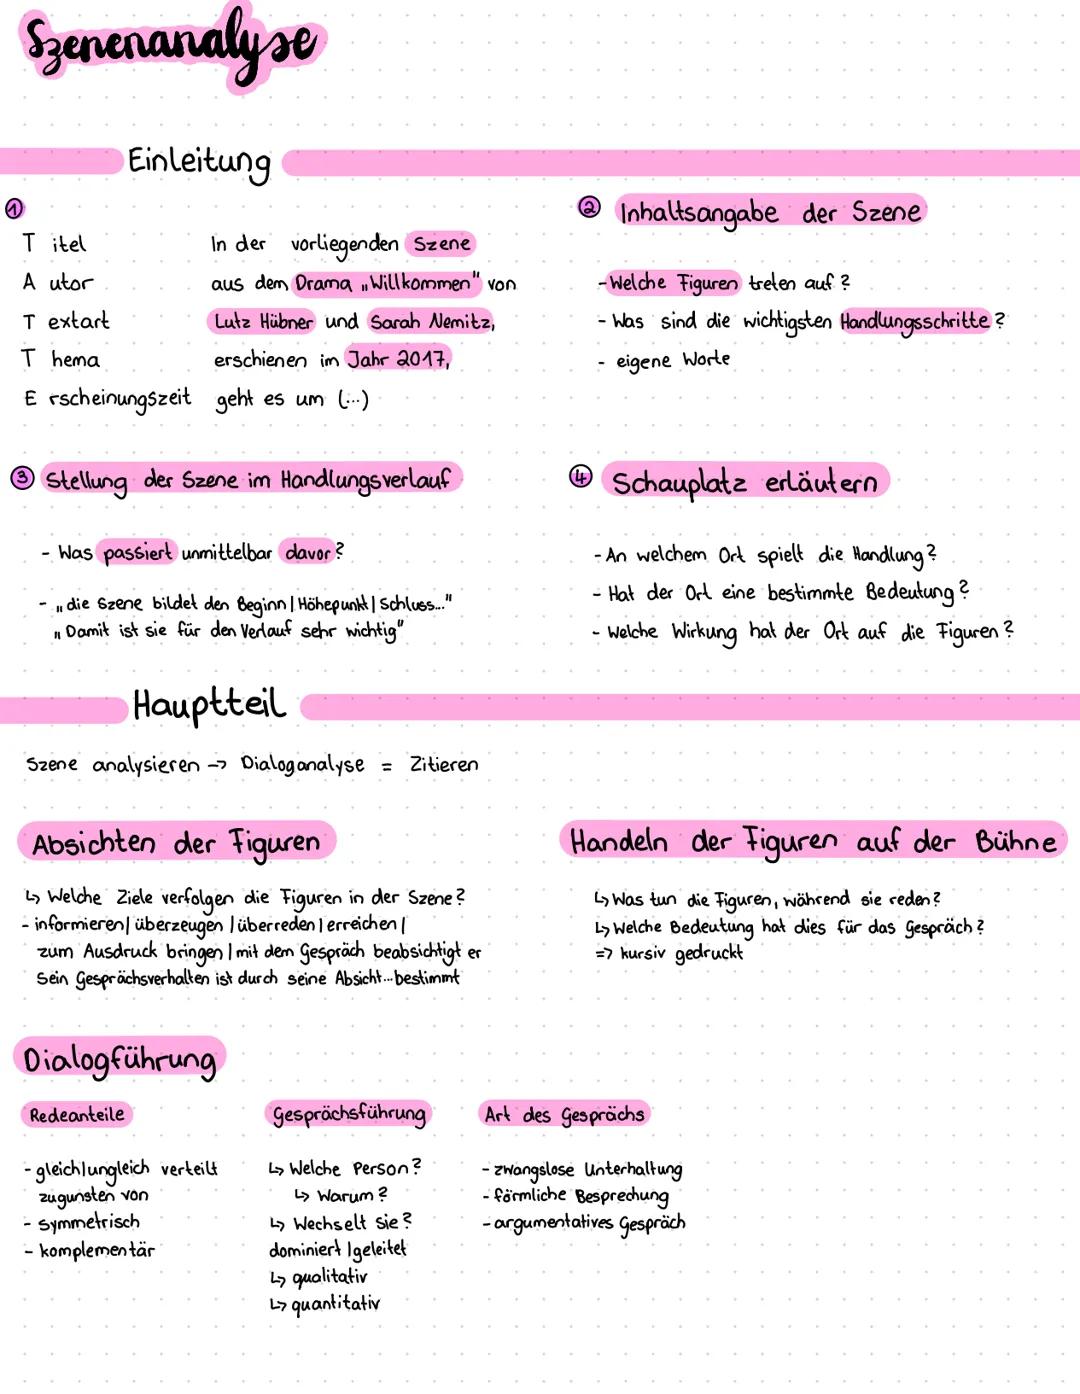 Szenenanalyse
Einleitung
①
T itel
A utor
T extart
T hema
E rscheinungszeit
In der vorliegenden Szene
aus dem Drama „Willkommen" von
Lutz Hübner und Sarah Nemitz,
erschienen im Jahr 2017,
geht es um (...)
② Inhaltsangabe der Szene
- Welche Figuren treten auf?
- Was sind die wichtigsten Handlungsschritte?
- eigene Worte
③ Stellung der Szene im Handlungsverlauf
- Was passiert unmittelbar davor?
- „die Szene bildet den Beginn | Höhepunkt | Schluss..."
„Damit ist sie für den Verlauf sehr wichtig"
④ Schauplatz erläutern
- An welchem Ort spielt die Handlung?
- Hat der Ort eine bestimmte Bedeutung?
- Welche Wirkung hat der Ort auf die Figuren?
Hauptteil
Szene analysieren -> Dialoganalyse = Zitieren
Absichten der Figuren
↳ Welche Ziele verfolgen die Figuren in der Szene?
- informieren | überzeugen | überreden | erreichen |
zum Ausdruck bringen | mit dem Gespräch beabsichtigt er
Sein Gesprächsverhalten ist durch seine Absicht... bestimmt
Handeln der Figuren auf der Bühne
↳ Was tun die Figuren, während sie reden?
↳ Welche Bedeutung hat dies für das Gespräch?
=> kursiv gedruckt
Dialogführung
Redeanteile
- gleich|ungleich verteilt
zugunsten von
- symmetrisch
- komplementär
Gesprächsführung
↳ Welche Person?
↳ Warum?
↳ Wechselt sie?
dominiert | geleitet
↳ qualitativ
↳ quantitativ
Art des Gesprächs
- zwangslose Unterhaltung
- förmliche Besprechung
- argumentatives Gespräch